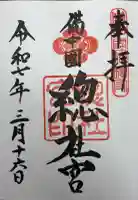 奉拝
備中國
總社宮
令和七年三月十六日